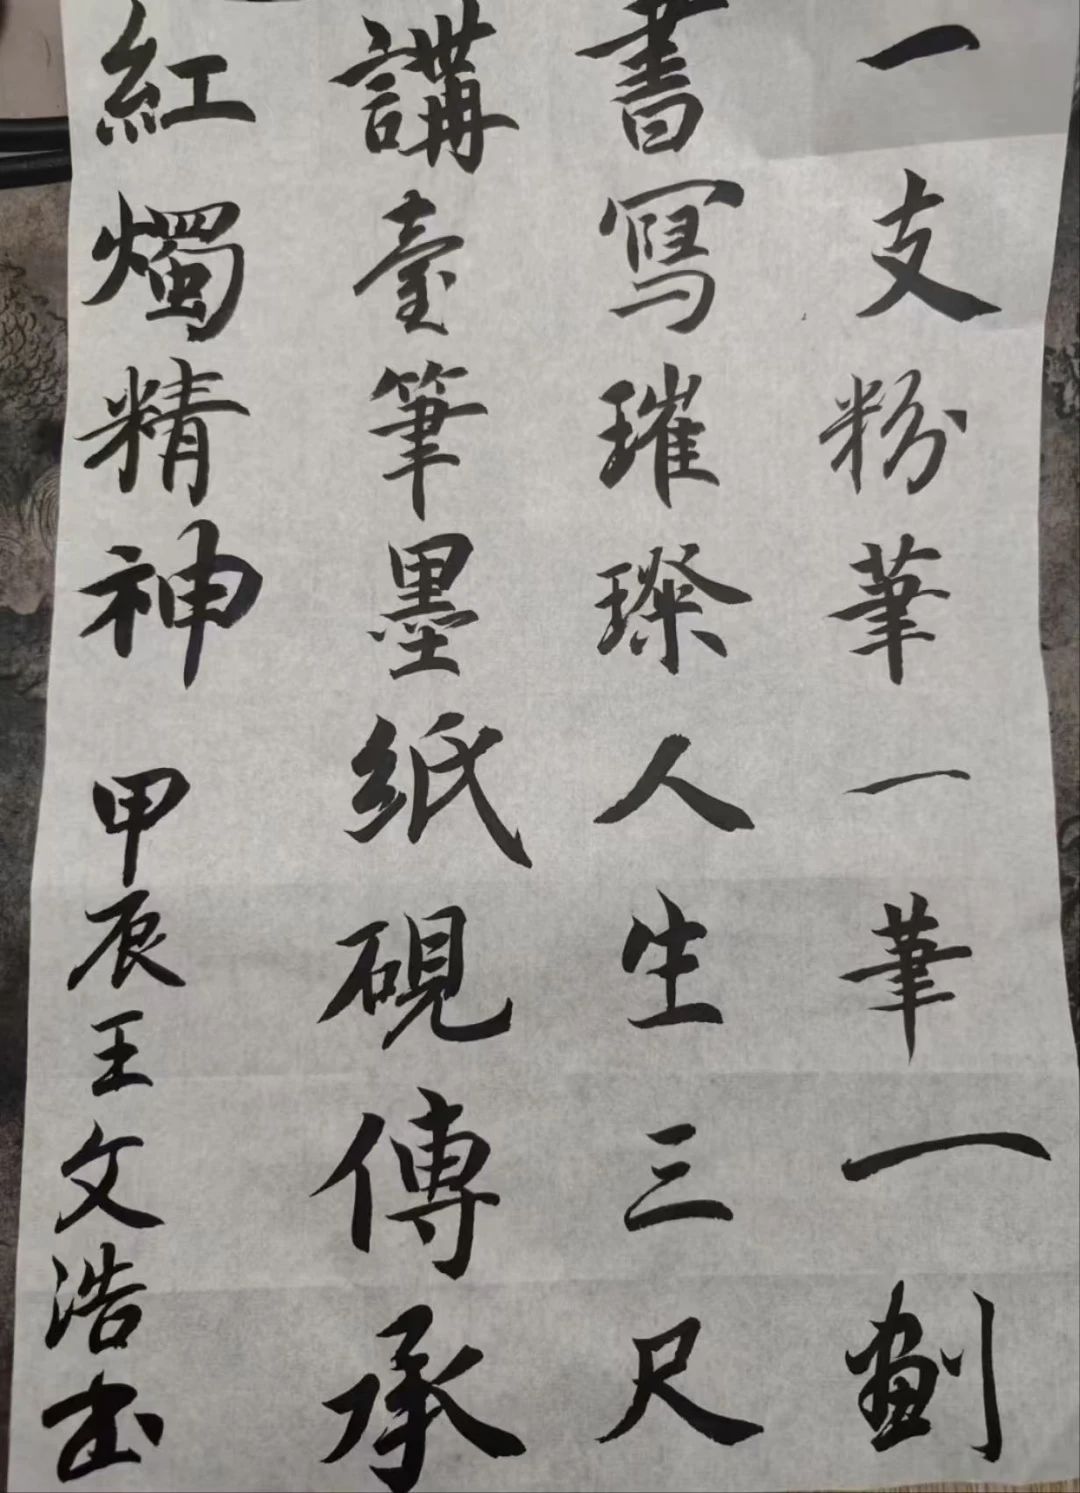 一支粉筆一筆一劃
書寫璀璨人生三尺
講臺筆墨紙硯傳承
紅燭精神 甲辰王文浩书